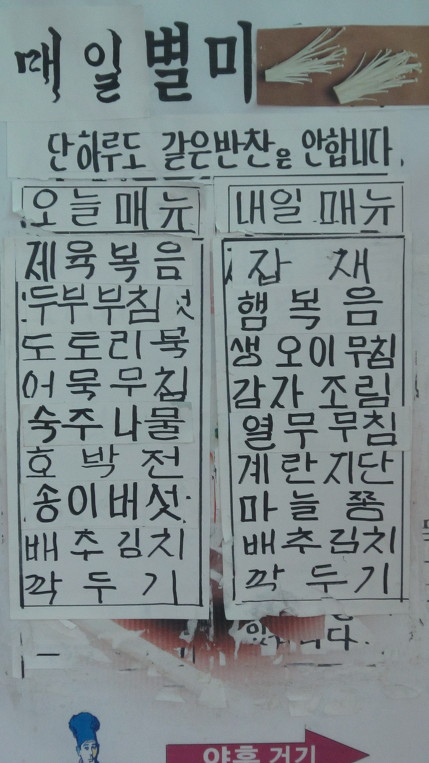 매일별미
단 하루도 같은반찬은 안합니다.
오늘 매뉴
제육복음
두부부침
도토리묵
어묵무침
숙주나물
호박전
송이버섯
배추김치
깍두기
내일 매뉴
잡채
햄복음
생오이무침
감자조림
열무무침
계란지단
마늘쫑
배추김치
깍두기